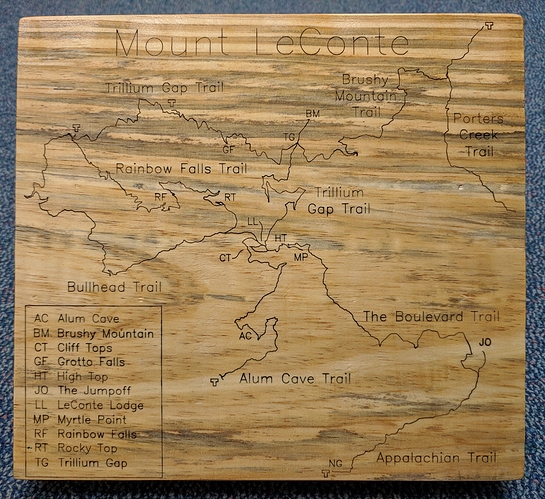 Mount LeConte
T
Trillium Gap Trail
T
Brushy
Mountain
Trail
BM
Porters
Creek
Trail
T
TG
GF
Rainbow Falls Trail
RF
RT
Trillium
Gap Trail
LL
HT
CT
MP
Bullhead Trail
The Boulevard Trail
AC
JO
T
Alum Cave Trail
AC Alum Cave
BM Brushy Mountain
CT Cliff Tops
GF Grotto Falls
HT High Top
JO The Jumpoff
LL LeConte Lodge
MP Myrtle Point
RF Rainbow Falls
RT Rocky Top
TG Trillium Gap
NG
T
Appalachian Trail